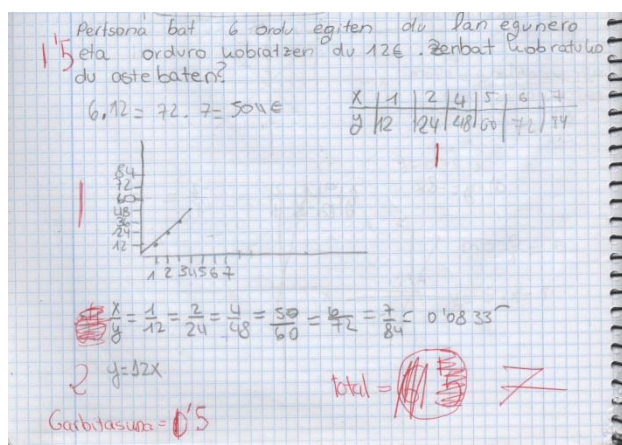 Pertsona bat 6 ordu egiten du lan egunero
1'5 eta orduro kobratzen du 12€. Zenbat kobratuko
du aste baten?
6.12 = 72. 7 = 504€
x | 1 | 2 | 4 | 5 | 6 | 7
y | 12 | 24 | 48 | 60 | 72 | 84
1
1
84
72
60
48
36
24
12
1 2 3 4 5 6 7
x/y = 1/12 = 2/24 = 4/48 = 50/60 = 6/72 = 7/84 = 0'0833
2 y=12x
total = 7
Garbitasuna = 0'5